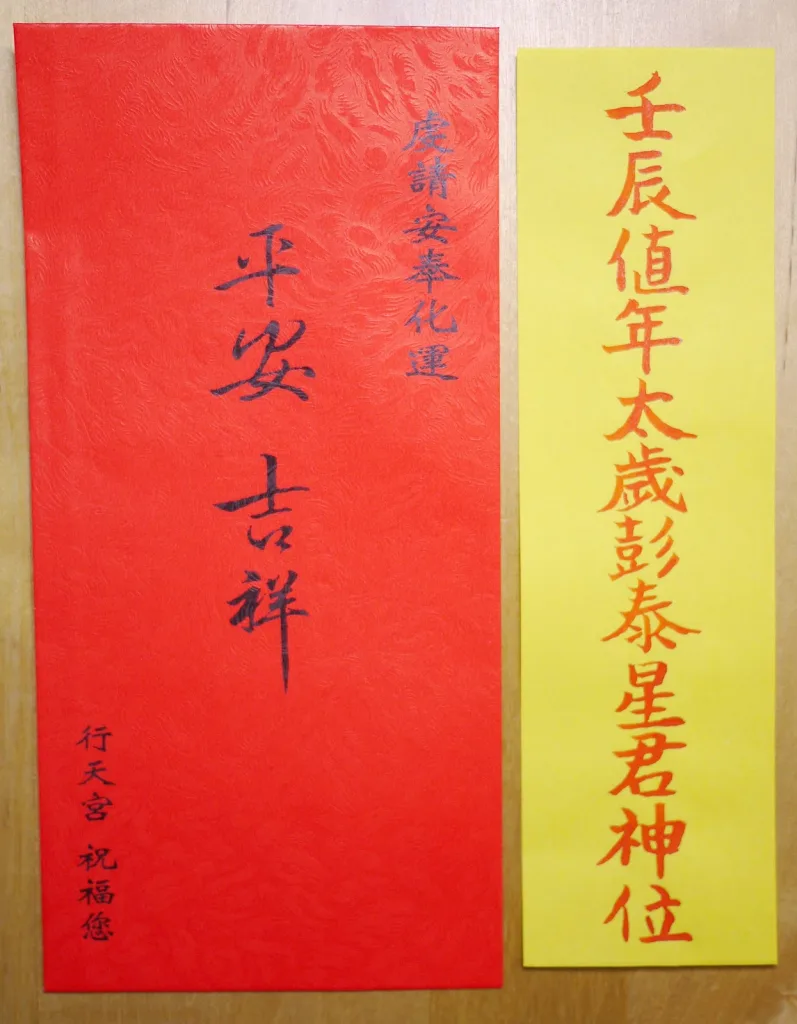 壬辰値年太歲彭泰星君神位
虔請安奉化運
平安 吉祥
行天宮 祝福您